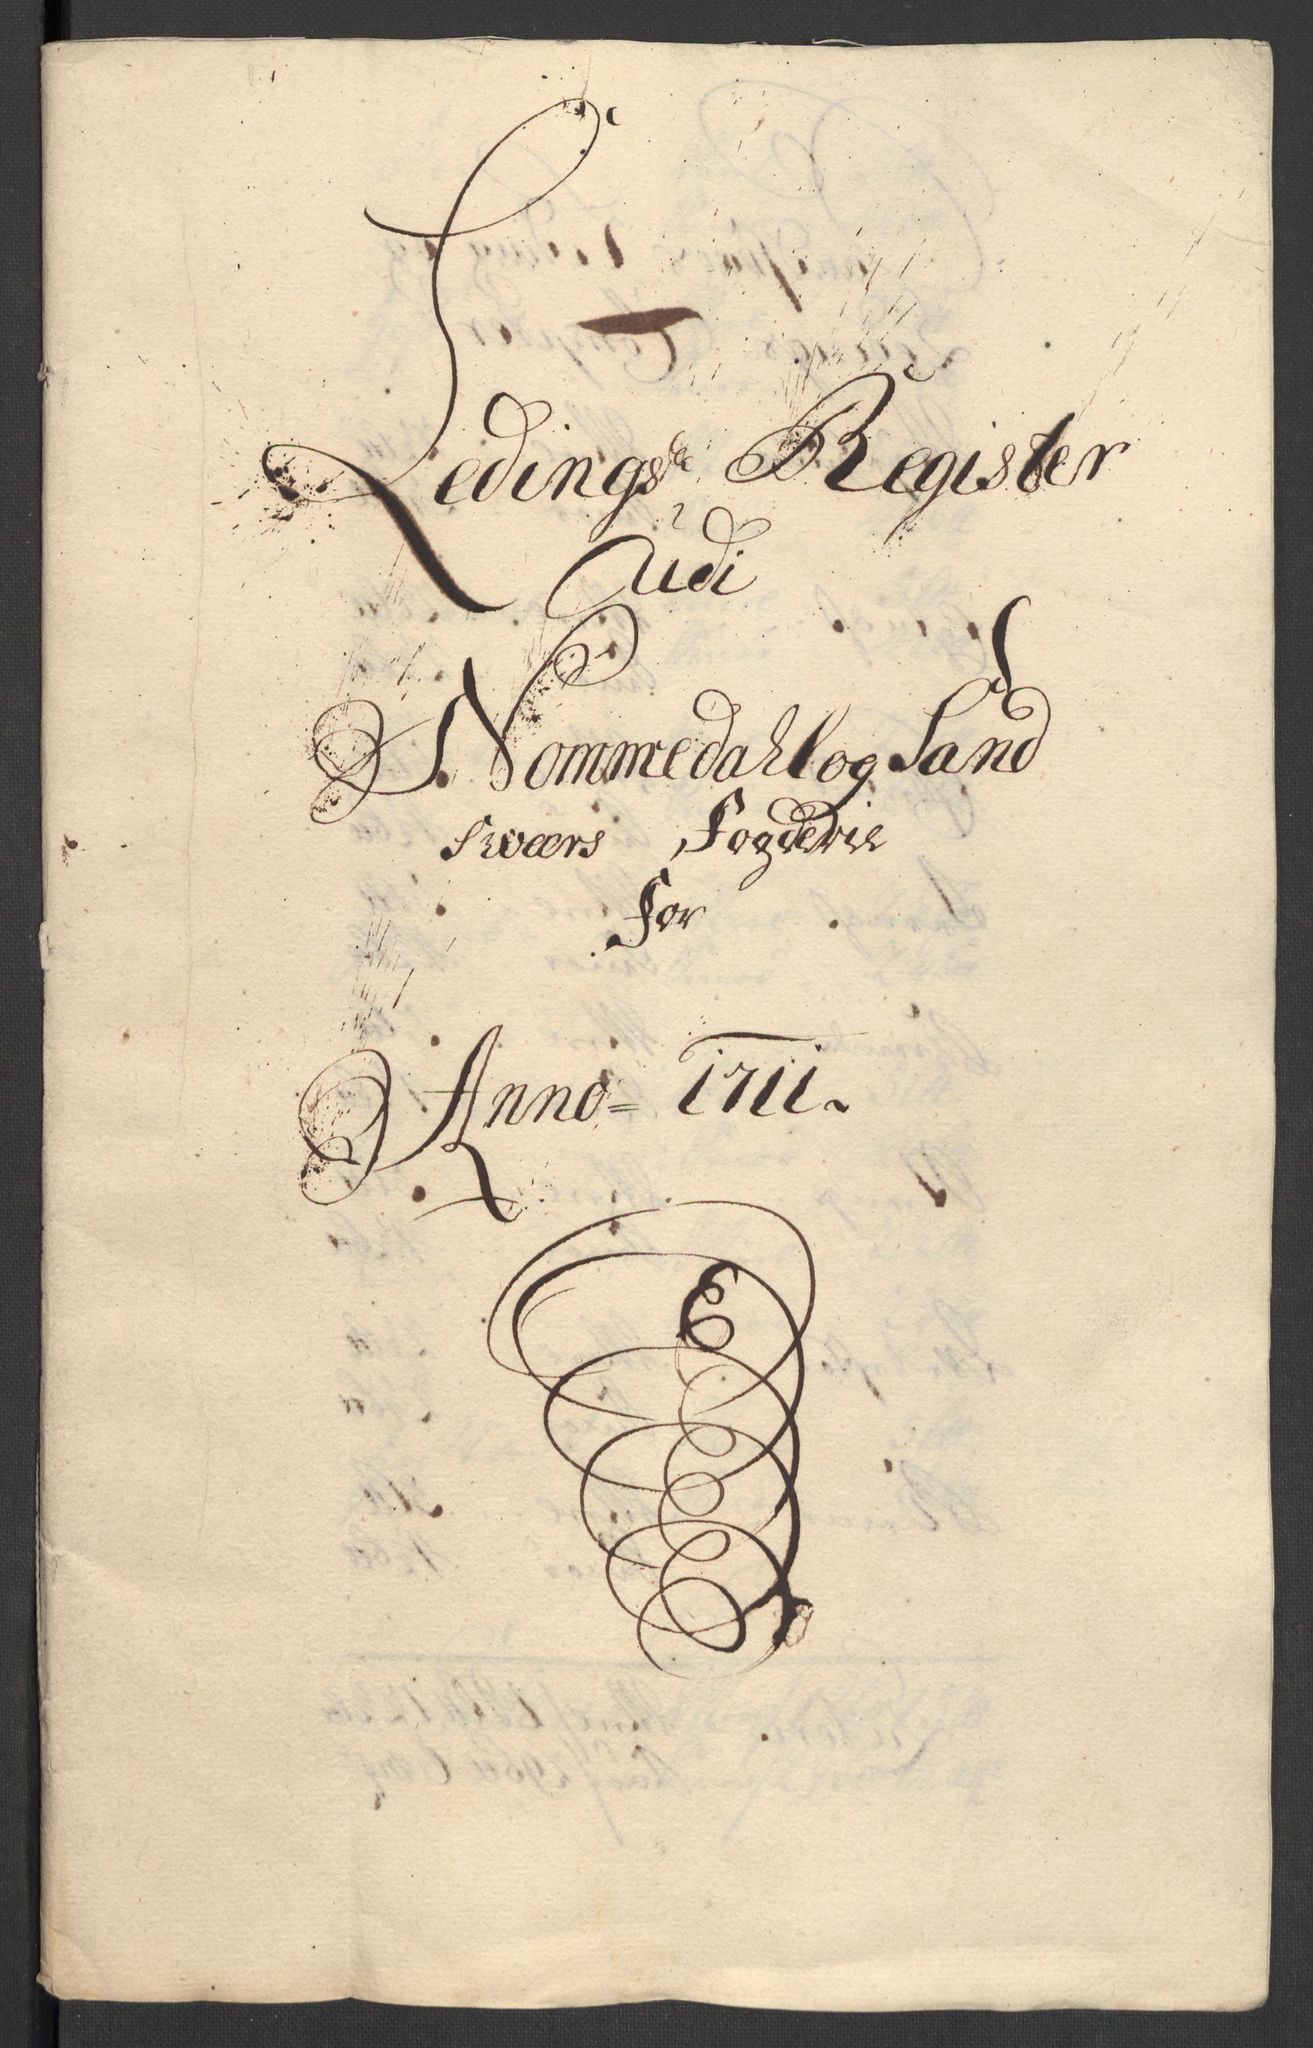 Ledings Register
Udi
Nommedahl og Sand
swærs Fogderie
For
Anno = 1711.